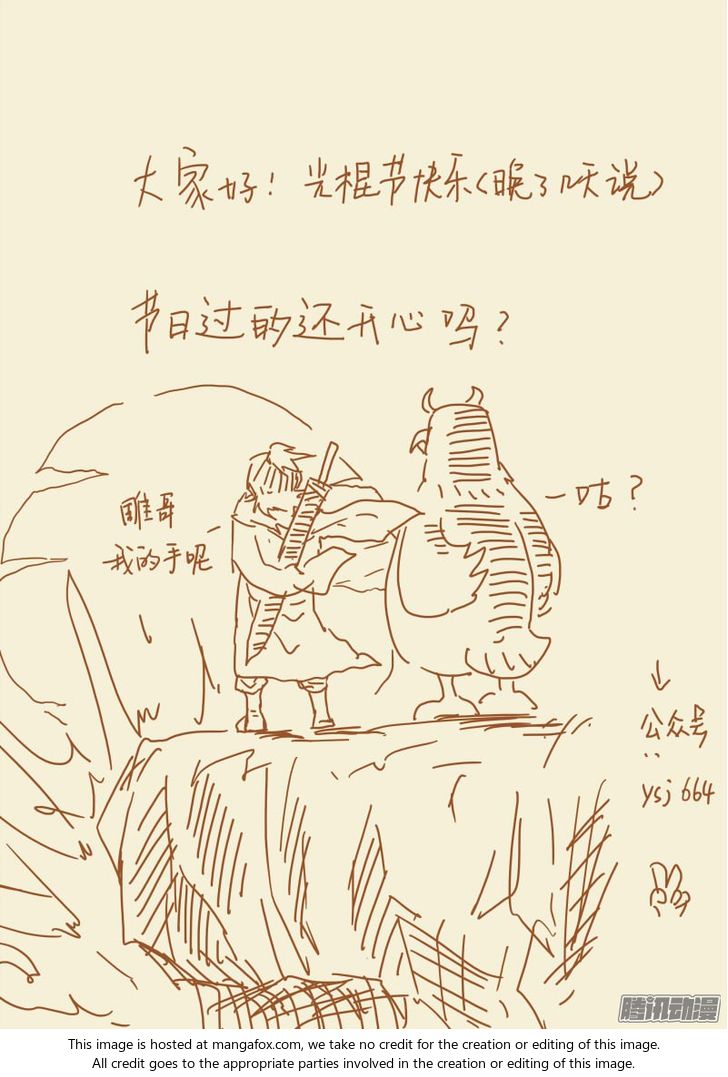 大家好！光棍节快乐（晚了几天说）
节日过的还开心吗？
雕哥
我的手呢
咕？
公众号：
ysj 664
腾讯动漫
This image is hosted at mangafox.com, we take no credit for the creation or editing of this image.
All credit goes to the appropriate parties involved in the creation or editing of this image.